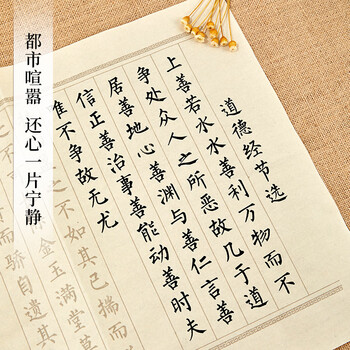 都市喧嚣 还心一片宁静
道德经节选
上善若水水善利万物而不
争处众人之所恶故几于道
居善地心善渊与善仁言善
信正善治事善能动善时夫
不争故无尤
之不如其已揣而
金玉满堂莫
而骄自遗其